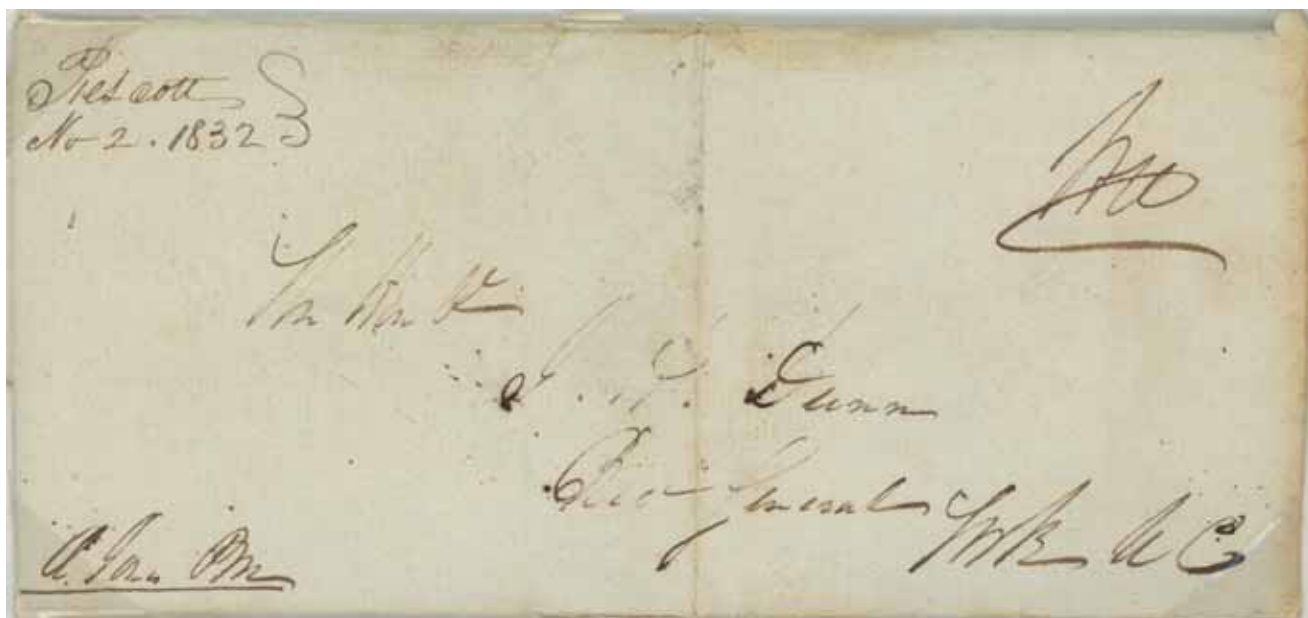 Prescott
No 2. 1832
Free
The Hon
J. H. Dunn
Recr General
York U C
A. Jones PM